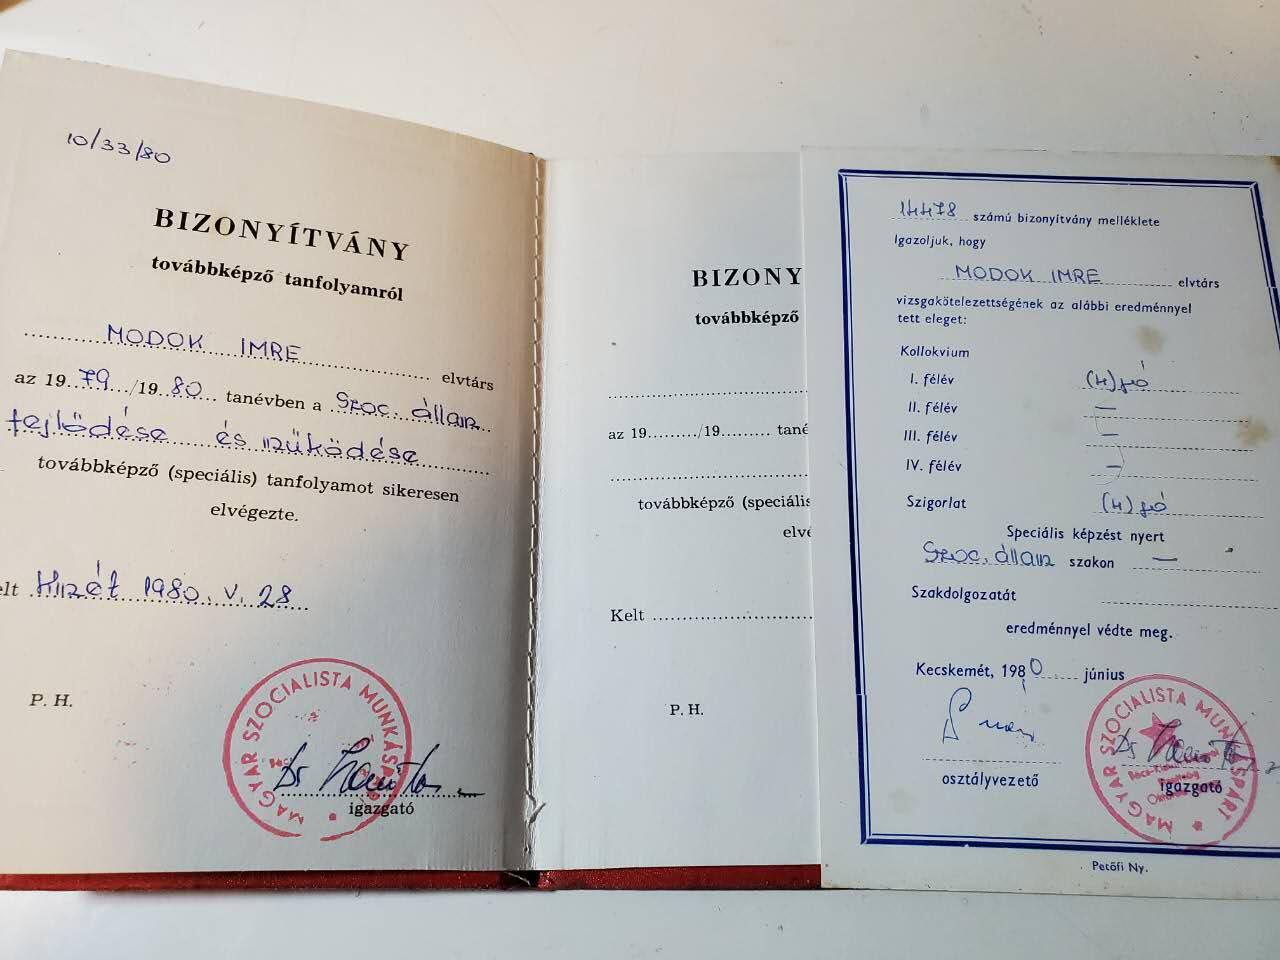 10/33/80
BIZONYÍTVÁNY
továbbképző tanfolyamról
MODOK IMRE elvtárs
az 1979/1980 tanévben a Szoc. állam
fejlődése és működése
továbbképző (speciális) tanfolyamot sikeresen
elvégezte.
elt 1980. V. 28
P. H.
MAGYAR SZOCIALISTA MUNKÁSPÁRT
Dr
igazgató
BIZONY
továbbképző
az 19........./19......... tané
továbbképző (speciális
elvé
Kelt
P. H.
14478 számú bizonyítvány melléklete
Igazoljuk, hogy
MODOK IMRE elvtárs
vizsgakötelezettségének az alábbi eredménnyel
tett eleget:
Kollokvium
I. félév (4) jó
II. félév —
III. félév —
IV. félév —
Szigorlat (4) jó
Speciális képzést nyert
Szoc. állam szakon —
Szakdolgozatát
eredménnyel védte meg.
Kecskemét, 1980 június
osztályvezető
MAGYAR SZOCIALISTA MUNKÁSPÁRT
Dr
igazgató
Petőfi Ny.